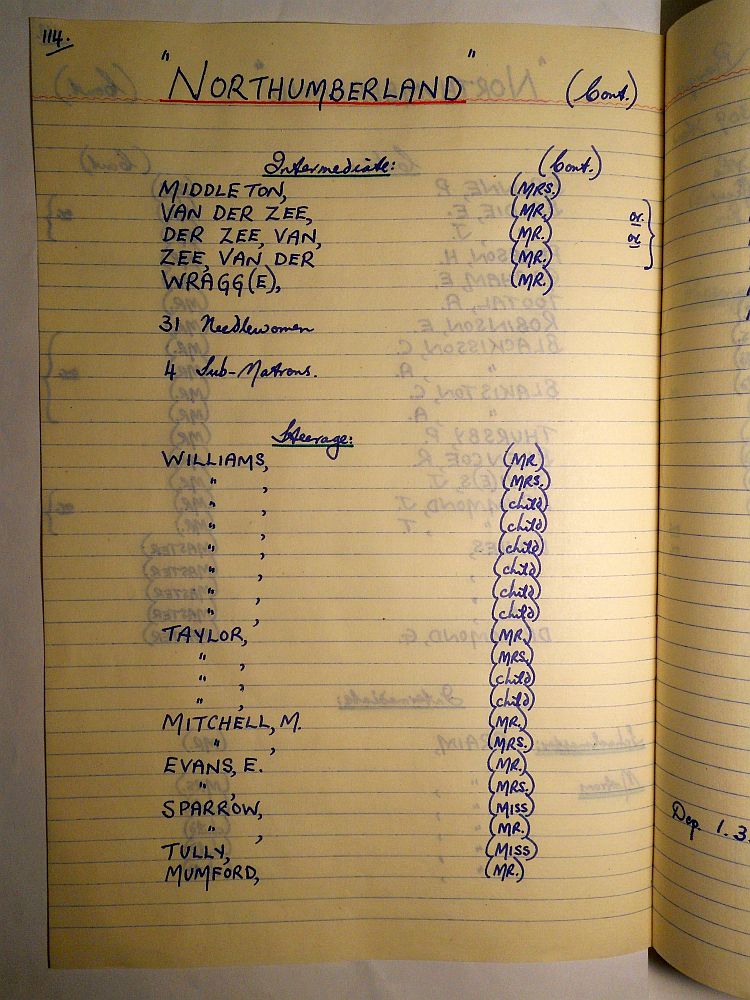 114.
"NORTHUMBERLAND" (Cont.)
Intermediate: (Cont.)
MIDDLETON, (MRS.)
VAN DER ZEE, (MR.)
DER ZEE, VAN, (MR.) or
ZEE, VAN DER (MR.) or
WRAGG(E), (MR.)
31 Needlewomen
4 Sub-Matrons.
Steerage:
WILLIAMS, (MR.)
" , (MRS.)
" , (child)
" , (child)
" , (child)
" , (child)
" , (child)
" , (child)
TAYLOR, (MR.)
" , (MRS.)
" , (child)
" , (child)
MITCHELL, M. (MR.)
" , (MRS.)
EVANS, E. (MR.)
" , (MRS.)
SPARROW, (MISS)
" , (MR.)
TULLY, (MISS)
MUMFORD, (MR.)
Dep. 1.3